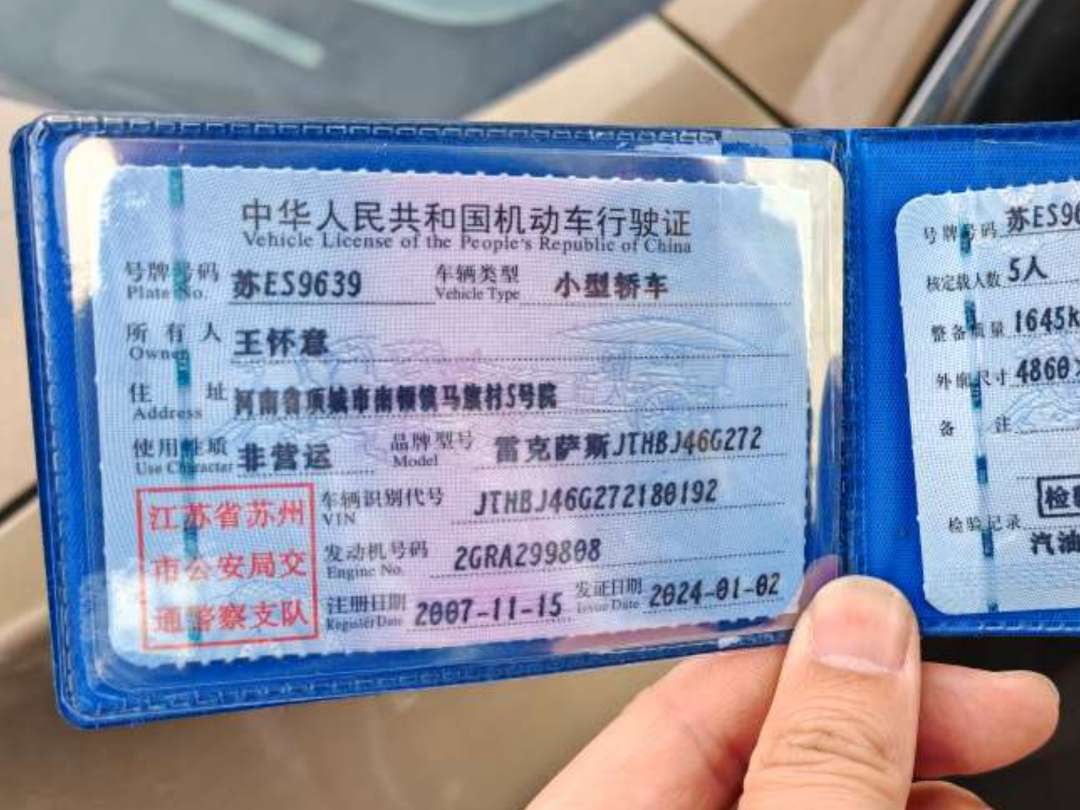 中华人民共和国机动车行驶证
Vehicle License of the People's Republic of China
号牌号码 苏ES9639 车辆类型 小型轿车
Plate No. Vehicle Type
所有人 王怀意
Owner
住址 河南省项城市南顿镇马旗村5号院
Address
使用性质 非营运 品牌型号 雷克萨斯JTHBJ46G272
Use Character Model
江苏省苏州
市公安局交
通警察支队
车辆识别代号 JTHBJ46G272180192
VIN
发动机号码 2GRA299808
Engine No.
注册日期 2007-11-15 发证日期 2024-01-02
Register Date Issue Date
号牌号码 苏ES96
核定载人数 5人
整备质量 1645k
外廓尺寸 4860X
备注
检验记录 检
汽油